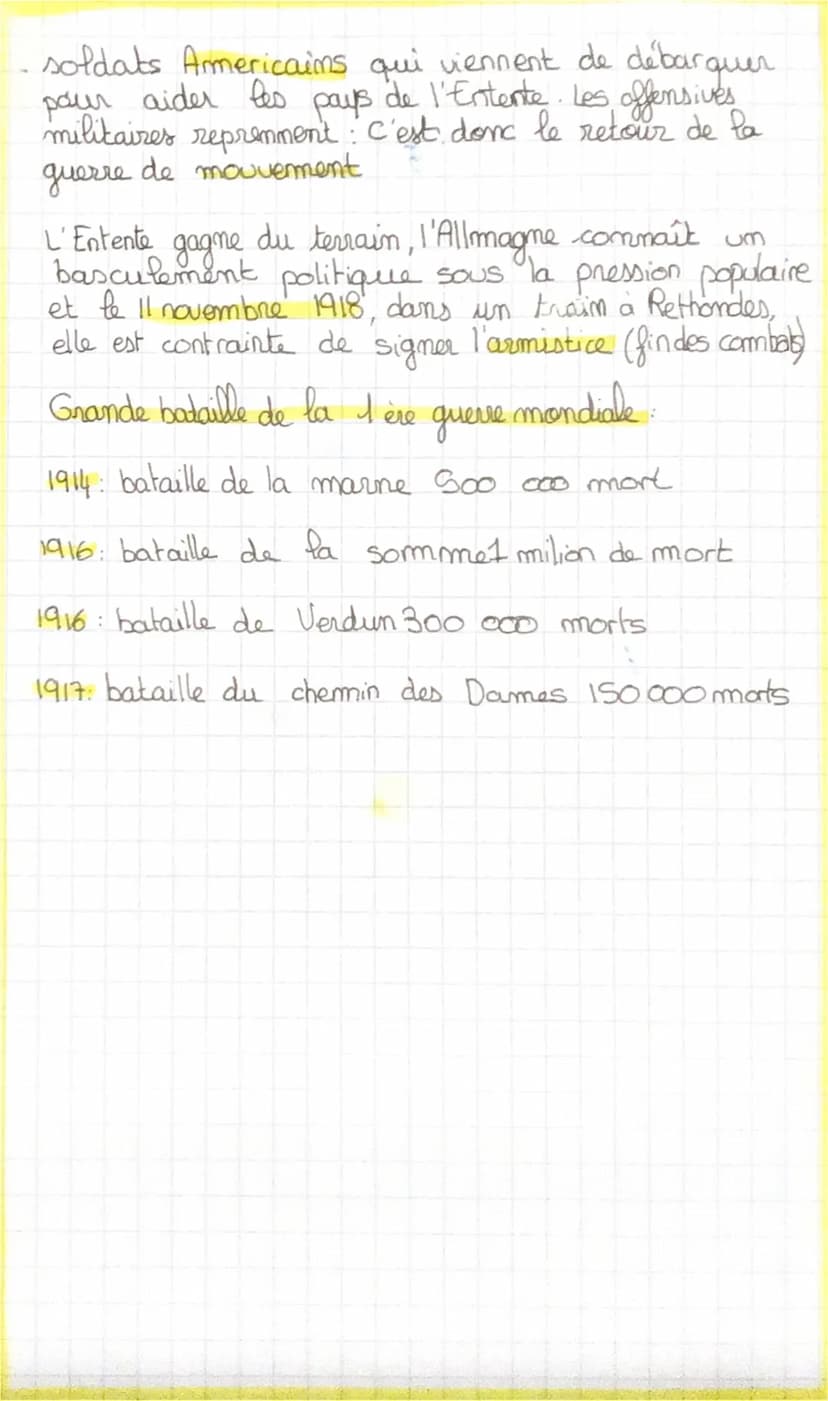 soldats Americains qui viennent de débarquer
pour aider les pays de l'Entente. Les offensives
militaires reprennent : C'est donc le retour de la
guerre de mouvement
L'Entente gagne du terrain, l'Allmagne connaît un
basculement politique sous la pression populaire
et le 11 novembre 1918, dans un train à Rethondes,
elle est contrainte de signer l'armistice (fin des combats)
Grande bataille de la 1 ère guerre mondiale :
1914 : bataille de la marne 500 000 mort
1916 : bataille de la somme 1 milion de mort
1916 : bataille de Verdun 300 000 morts
1917 : bataille du chemin des Dames 150 000 morts